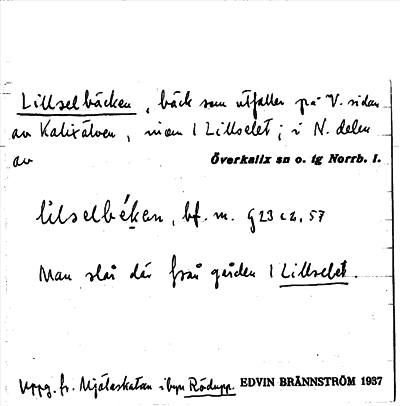 Lillselbäcken, bäck som utfaller på V. sidan
av Kalixälven, inom l Lillselet; i N. delen
av Överkalix sn o. tg Norrb. l.
lilselbékan, bf. m. G 23 57
Man slår där från gården l Lillselet.
Uppg. fr. Mjölaskatan i byn Rödupp. EDVIN BRÄNNSTRÖM 1937